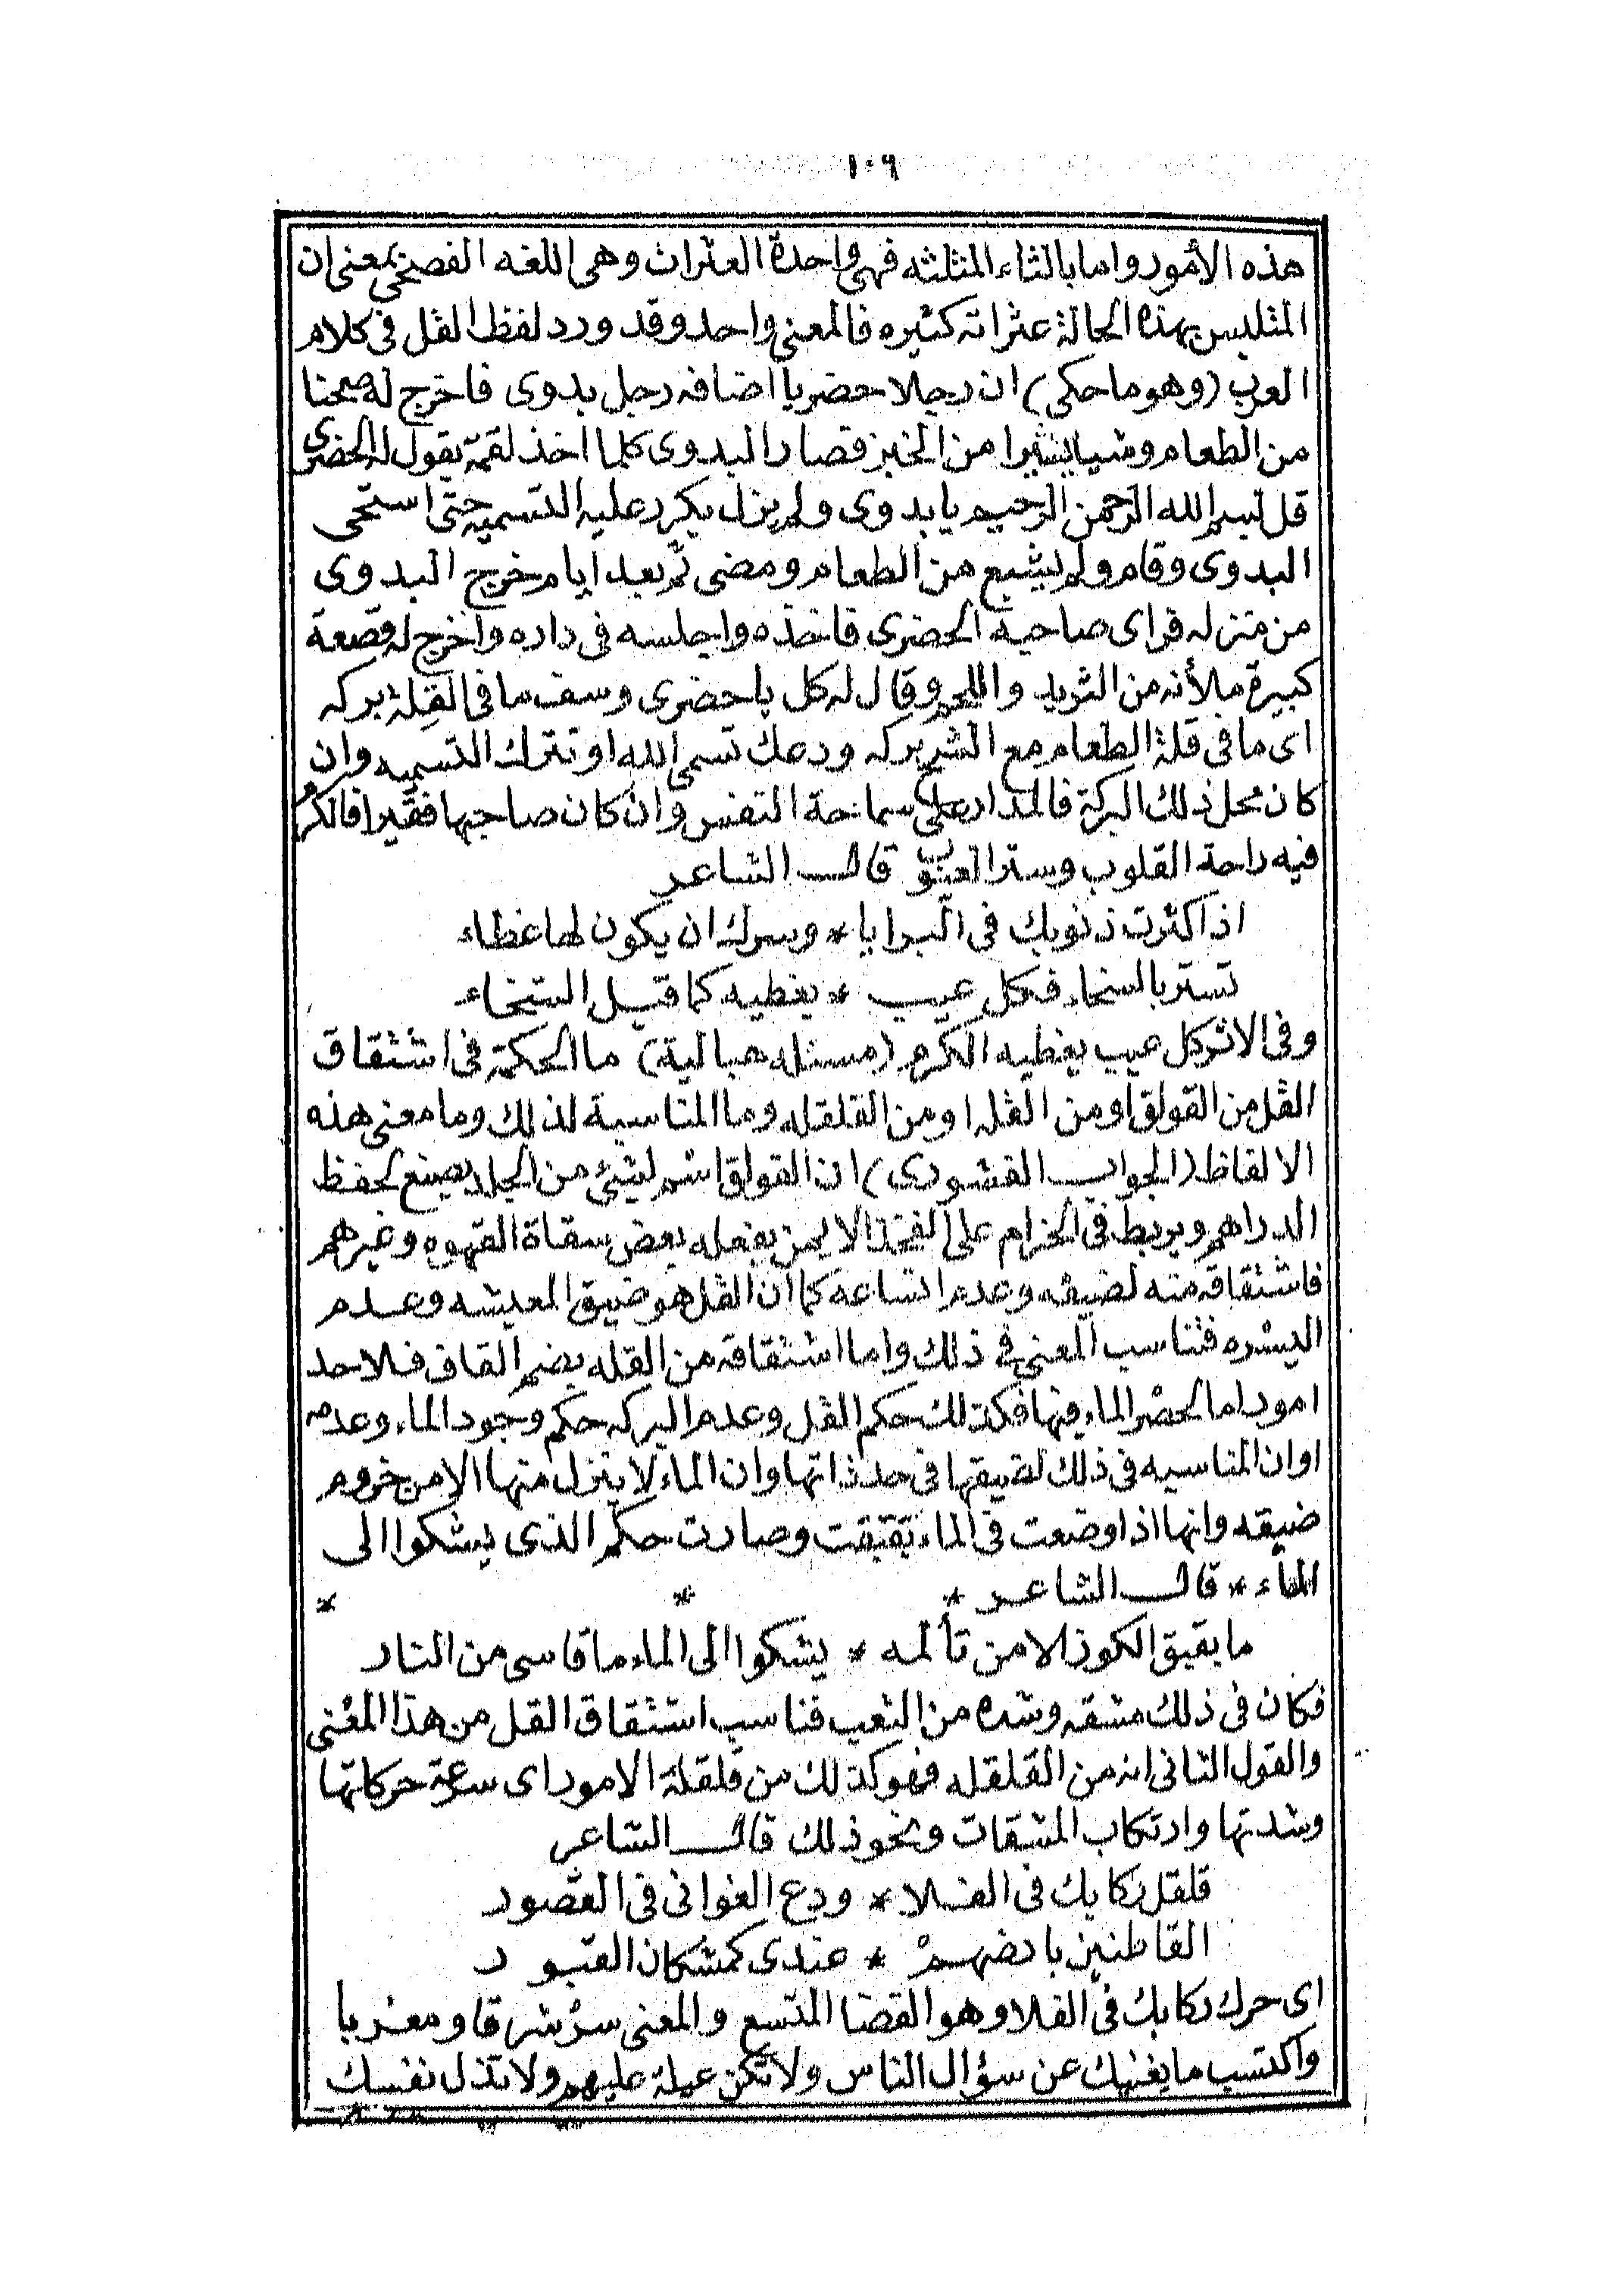 ١٠٩
هذه الأمور واما بالثاء المثلثه فهى واحدة العثرات وهى اللغه الفصحى بمعنى ان
المتلبس بهذه الحالة عثراته كثيره فالمعنى واحد وقد ورد لفظ القل فى كلام
العرب (وهو ما حكى) ان رجلا حضريا اضافه رجل بدوى فاخرج له صحنا
من الطعام وشيا يسيرا من الخبز فصار البدوى كلما اخذ لقمة يقول له الحضرى
قل بسم الله الرحمن الرحيم يا بدوى ولم يزل يكرر عليه التسميه حتى استحى
البدوى وقام ولم يشبع من الطعام ومضى ثم بعد ايام خرج البدوى
من منزله فراى صاحبه الحضرى فاخذه واجلسه فى داره واخرج له قصعة
كبيرة ملأنه من الثريد واللحم وقال له كل يا حضرى وسف ما فى القلة بركه
اى ما فى قلة الطعام مع الشح بركه ودعك تسمى الله او تترك التسميه وان
كان محل ذلك البركة فالمدار على سماحة النفس وان كان صاحبها فقيرا فالكرم
فيه راحة القلوب وستر العيوب قال الشاعر
اذا كثرت ذنوبك فى البرايا * وسرك ان يكون لها غطاء
تستر بالسخاء فكل عيب * يغطيه كما قيل السخاء
وفى الاثر كل عيب يغطيه الكرم (مسئله هبالية) ما الحكمة فى اشتقاق
القل من القولق او من القله او من القلقله وما المناسبة لذلك وما معنى هذه
الالفاظ (الجواب الفشودى) ان القولق اسم لشئ من الجلد يصنع لحفظ
الدراهم ويربط فى الحزام على الفخذ الايمن يفعله بعض سقاة القهوه وغيرهم
فاشتقاقه منه لضيقه وعدم اتساعه كما ان القل هو ضيق المعيشه وعدم
اليسره فتناسب المعنى فى ذلك واما اشتقاقه من القله بضم القاف فلاحد
امور اما لحصر الماء فيها فكذلك حكم القل وعدم البركه حكم وجود الماء وعدمه
او ان المناسبه فى ذلك لضيقها فى حد ذاتها وان الماء لا ينزل منها الا من خروم
ضيقه وانها اذا وضعت فى الماء تقبقبت وصارت حكم الذى يشكوا الى
الماء * قال الشاعر * * *
ما بقبق الكوز الا من تألمه * يشكوا الى الماء ما قاسى من النار
فكان فى ذلك مشقه وشده من التعب فناسب اشتقاق القل من هذا المعنى
والقول الثانى انه من القلقله فهو كذلك من قلقلة الامور اى سرعة حركاتها
وشدتها وارتكاب المشقات ونحو ذلك قال الشاعر
قلقل ركابك فى الفلا * ودع الغوانى فى القصور
القاطنين بارضهم * عندى كمشكان القبور
اى حرك ركابك فى الفلا وهو الفضا المتسع والمعنى سر شرقا ومغربا
واكتسب ما يغنيك عن سؤال الناس ولا تكن عيلة عليهم ولا تذل نفسك